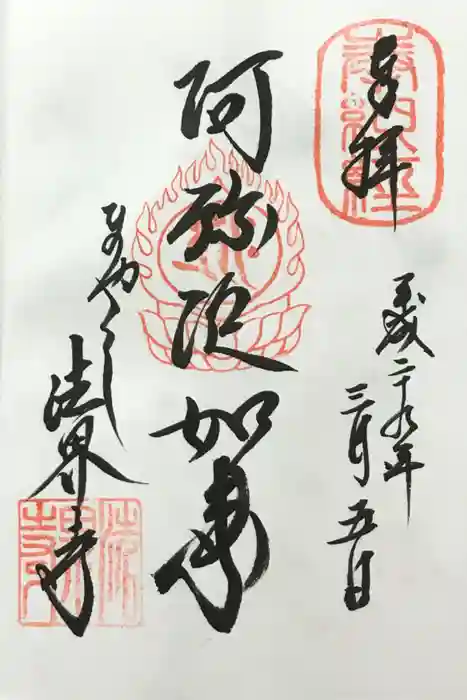 奉拝
平成二十九年
三月五日
阿弥陀如来
ひのやくし
法界寺